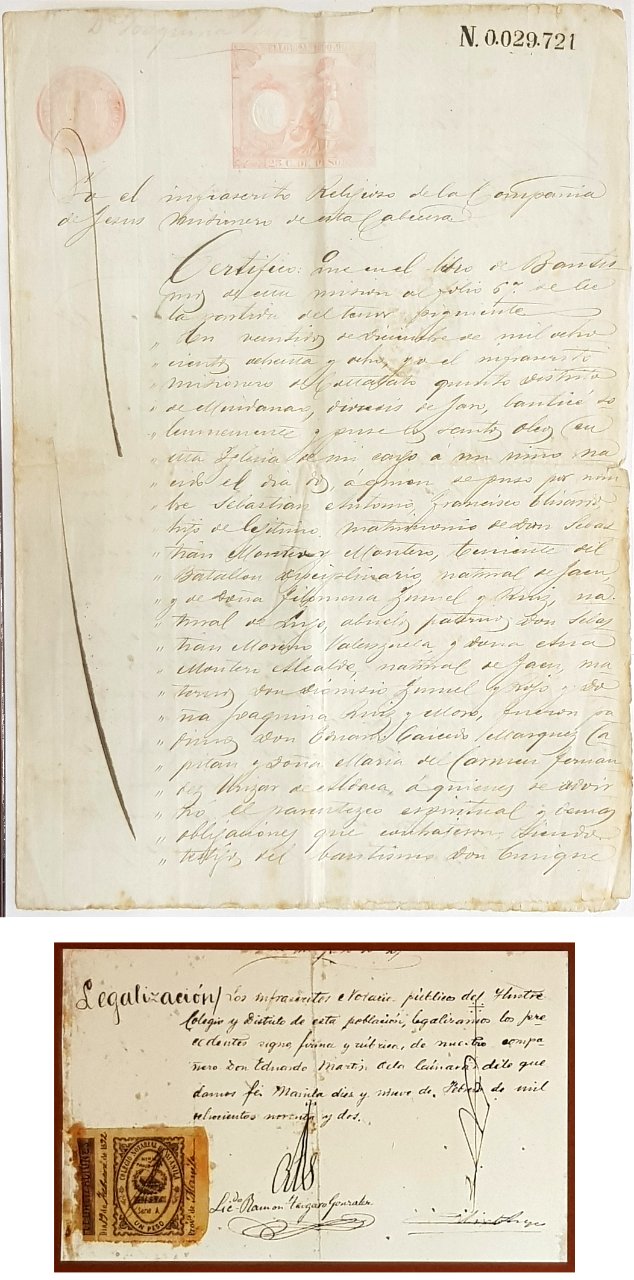 N. 0.029.721
25 C. DE PESO
Yo el infrascrito Religioso de la Compañia
de Jesus Misionero de esta Cabecera
Certifico: Que en el libro de Bautis
mos de esta mision al folio 6º se lee
la partida del tenor siguiente
" En de Diciembre de mil ocho
" ciento ochenta y ocho, yo el infrascrito
" misionero de quinto Distrito
" de Mindanao, diocesis de Jaro, bautice so
" lemnemente y puse los santos oleos en
" esta Iglesia de mi cargo á un niño na
" cido el dia á quien se puso por nom
" bre Sebastian Antonio, Francisco
" hijo de legitimo matrimonio de Don Sebas
" tian Moreno y Montero, teniente del
" Batallon Disciplinario, natural de Jaen,
" y de Doña Filomena Zumel y Ruiz, na
" tural de abuelos paternos Don Sebas
" tian Moreno Valenzuela y doña Ana
" Montero Alcalde, natural de Jaen, ma
" ternos Don Dionisio Zumel y Rojo y Do
" ña Joaquina Ruiz y Moro, fueron pa
" drinos Don Caicedo Marquez Ca
" pitan y Doña Maria del Carmen Fernan
" dez de á quienes se advir
" tió el parentezco espiritual y demas
" obligaciones que contraieron, siendo
" testigo del bautismo Don Enrique
Legalización/ Los infrascritos Notarios públicos del Ilustre
Colegio y Distrito de esta población, legalizamos los pre=
cedentes signo, firma y rúbrica, de nuestro compa
ñero Don Eduardo Martin de la Cámara; de lo que
damos fé. Manila diez y nueve de Febrero de mil
ochocientos noventa y dos.
LEGALIZACIONES
COLEGIO NOTARIAL DE MANILA
Serie A
UN PESO
Lic. do Ramon Gonzalez